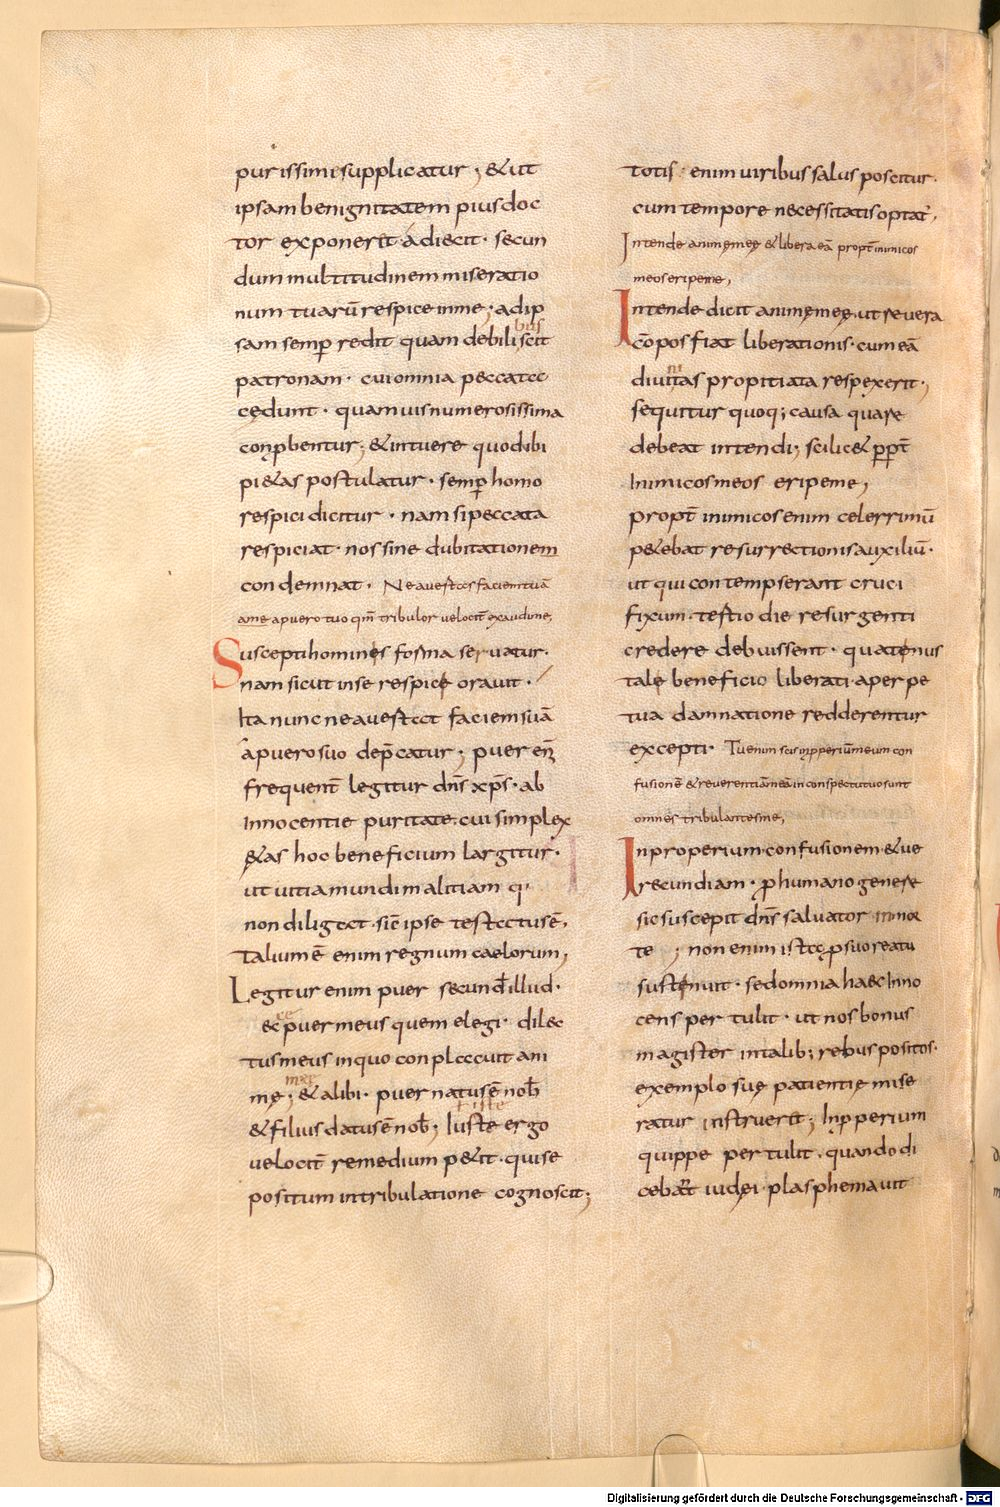 purissimi supplicatur; & ut
ipsam benignitatem pius doc
tor exponerit adiecit · secun
dum multitudinem miseratio
num tuarū respice in me; ad ip
sam semp redit quam debilibus scit
patronam · cui omnia peccata
cędunt · quamuis numerosissima
conpbentur; & intuere quod ibi
pi&as postulatur · semp homo
respici dicitur · nam si peccata
respiciat · nos sine dubitationem
condemnat · Ne auertas faciem tuā
a me a puero tuo qm̄ tribulor uelocit̄ exaudi me,
Suscepti hominis forma seruatur ·
nam sicut in se respice orauit ·
Ita nunc ne auertat faciem suā
a puero suo dep̄catur; puer eni
frequent̄ legitur dn̄s xp̄s · ab
Innocentie puritate · cui simplex
&as hoc beneficium largitur ·
ut uitia mundi malitiam q;
non diligat · sic ipse testatus ē,
Talium ē enim regnum caelorum,
Legitur enim puer secund illud ·
ecce puer meus quem elegi · dilec
tus meus in quo conplacuit ani
mę meę; & alibi · puer natus ē nob̄
& filius datus ē nob̄; Iuste ergo
uelocit̄ remedium p&it · qui se
positum in tribulatione cognoscit;
totis enim uiribus salus poscitur ·
cum tempore necessitatis optat̄,
Intende animę meę & libera eā propt̄ inimicos
meos eripe me,
Intende dicit animę meę, ut se uera
cōpos fiat liberationis · cum eā
diuinitas propitiata respexerit ·,
sequitur quoq; causa quare
debeat intendi; scilic& ppt̄
Inimicos meos eripe me,
propt̄ inimicos enim celerrimū
p&ebat resurrectionis auxiliū ·
ut qui contempserant cruci
fixum · testio die resurgenti
credere debuissent · quatenus
tale beneficio liberati · a perpe
tua damnatione redderentur
excepti · Tu enim scis inpperiū meum con
fusionē & reuerentiā meā in conspectu tuo sunt
omnes tribulantes me,
Inproperium · confusionem · & ue
recundiam · p humano genere
sic suscepit dn̄s saluator in mor
te ; non enim ista p suo reatu
sustenuit · sed omnia haec Inno
cens per tulit · ut nos bonus
magister in talib; rebus positos ·
exemplo suę patientię mise
ratur instruerit; Inpperium
quippe per tulit · quando di
cebant iudęi · plasphemauit
Digitalisierung gefördert durch die Deutsche Forschungsgemeinschaft - DFG